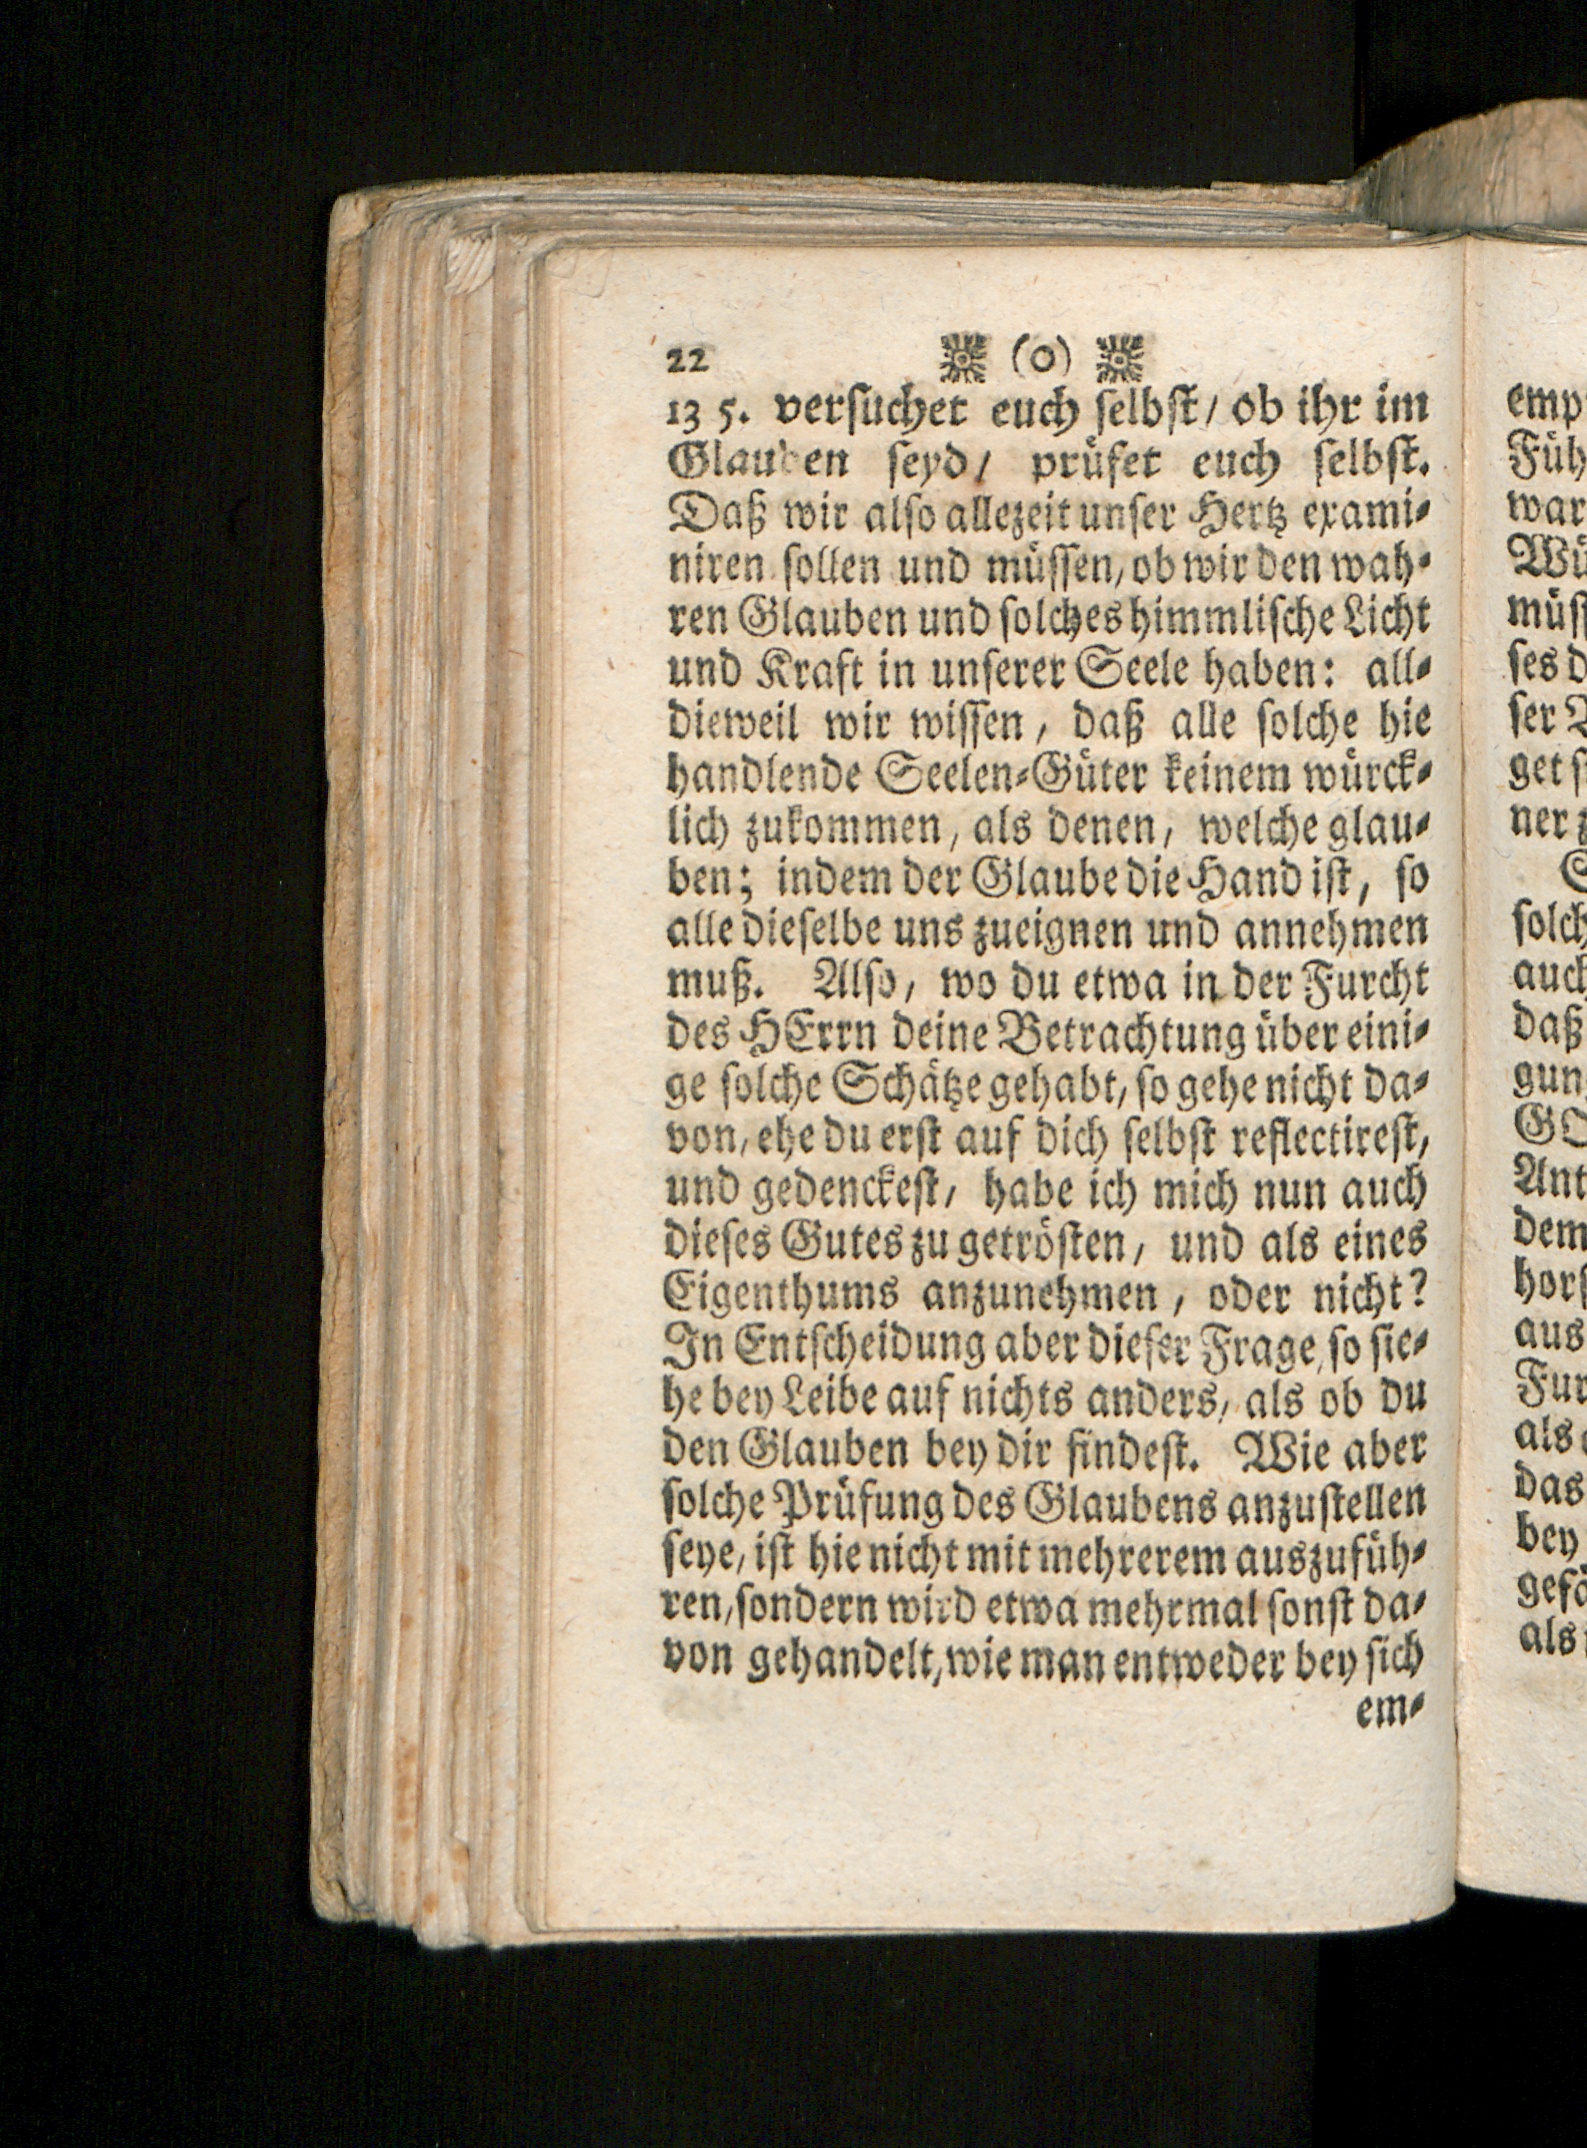 22 (o)
13 5. versuchet euch selbst/ ob ihr im
Glauben seyd/ prüfet euch selbst.
Daß wir also allezeit unser Hertz exami-
niren sollen und müssen, ob wir den wah-
ren Glauben und solches himmlische Licht
und Kraft in unserer Seele haben: all-
dieweil wir wissen, daß alle solche hie
handlende Seelen-Güter keinem würck-
lich zukommen, als denen, welche glau-
ben; indem der Glaube die Hand ist, so
alle dieselbe uns zueignen und annehmen
muß. Also, wo du etwa in der Furcht
des HErrn deine Betrachtung über eini-
ge solche Schätze gehabt, so gehe nicht da-
von, ehe du erst auf dich selbst reflectirest,
und gedenckest, habe ich mich nun auch
dieses Gutes zu getrösten, und als eines
Eigenthums anzunehmen, oder nicht?
In Entscheidung aber dieser Frage, so sie-
he bey Leibe auf nichts anders, als ob du
den Glauben bey dir findest. Wie aber
solche Prüfung des Glaubens anzustellen
seye, ist hie nicht mit mehrerem auszufüh-
ren, sondern wird etwa mehrmal sonst da-
von gehandelt, wie man entweder bey sich
em-